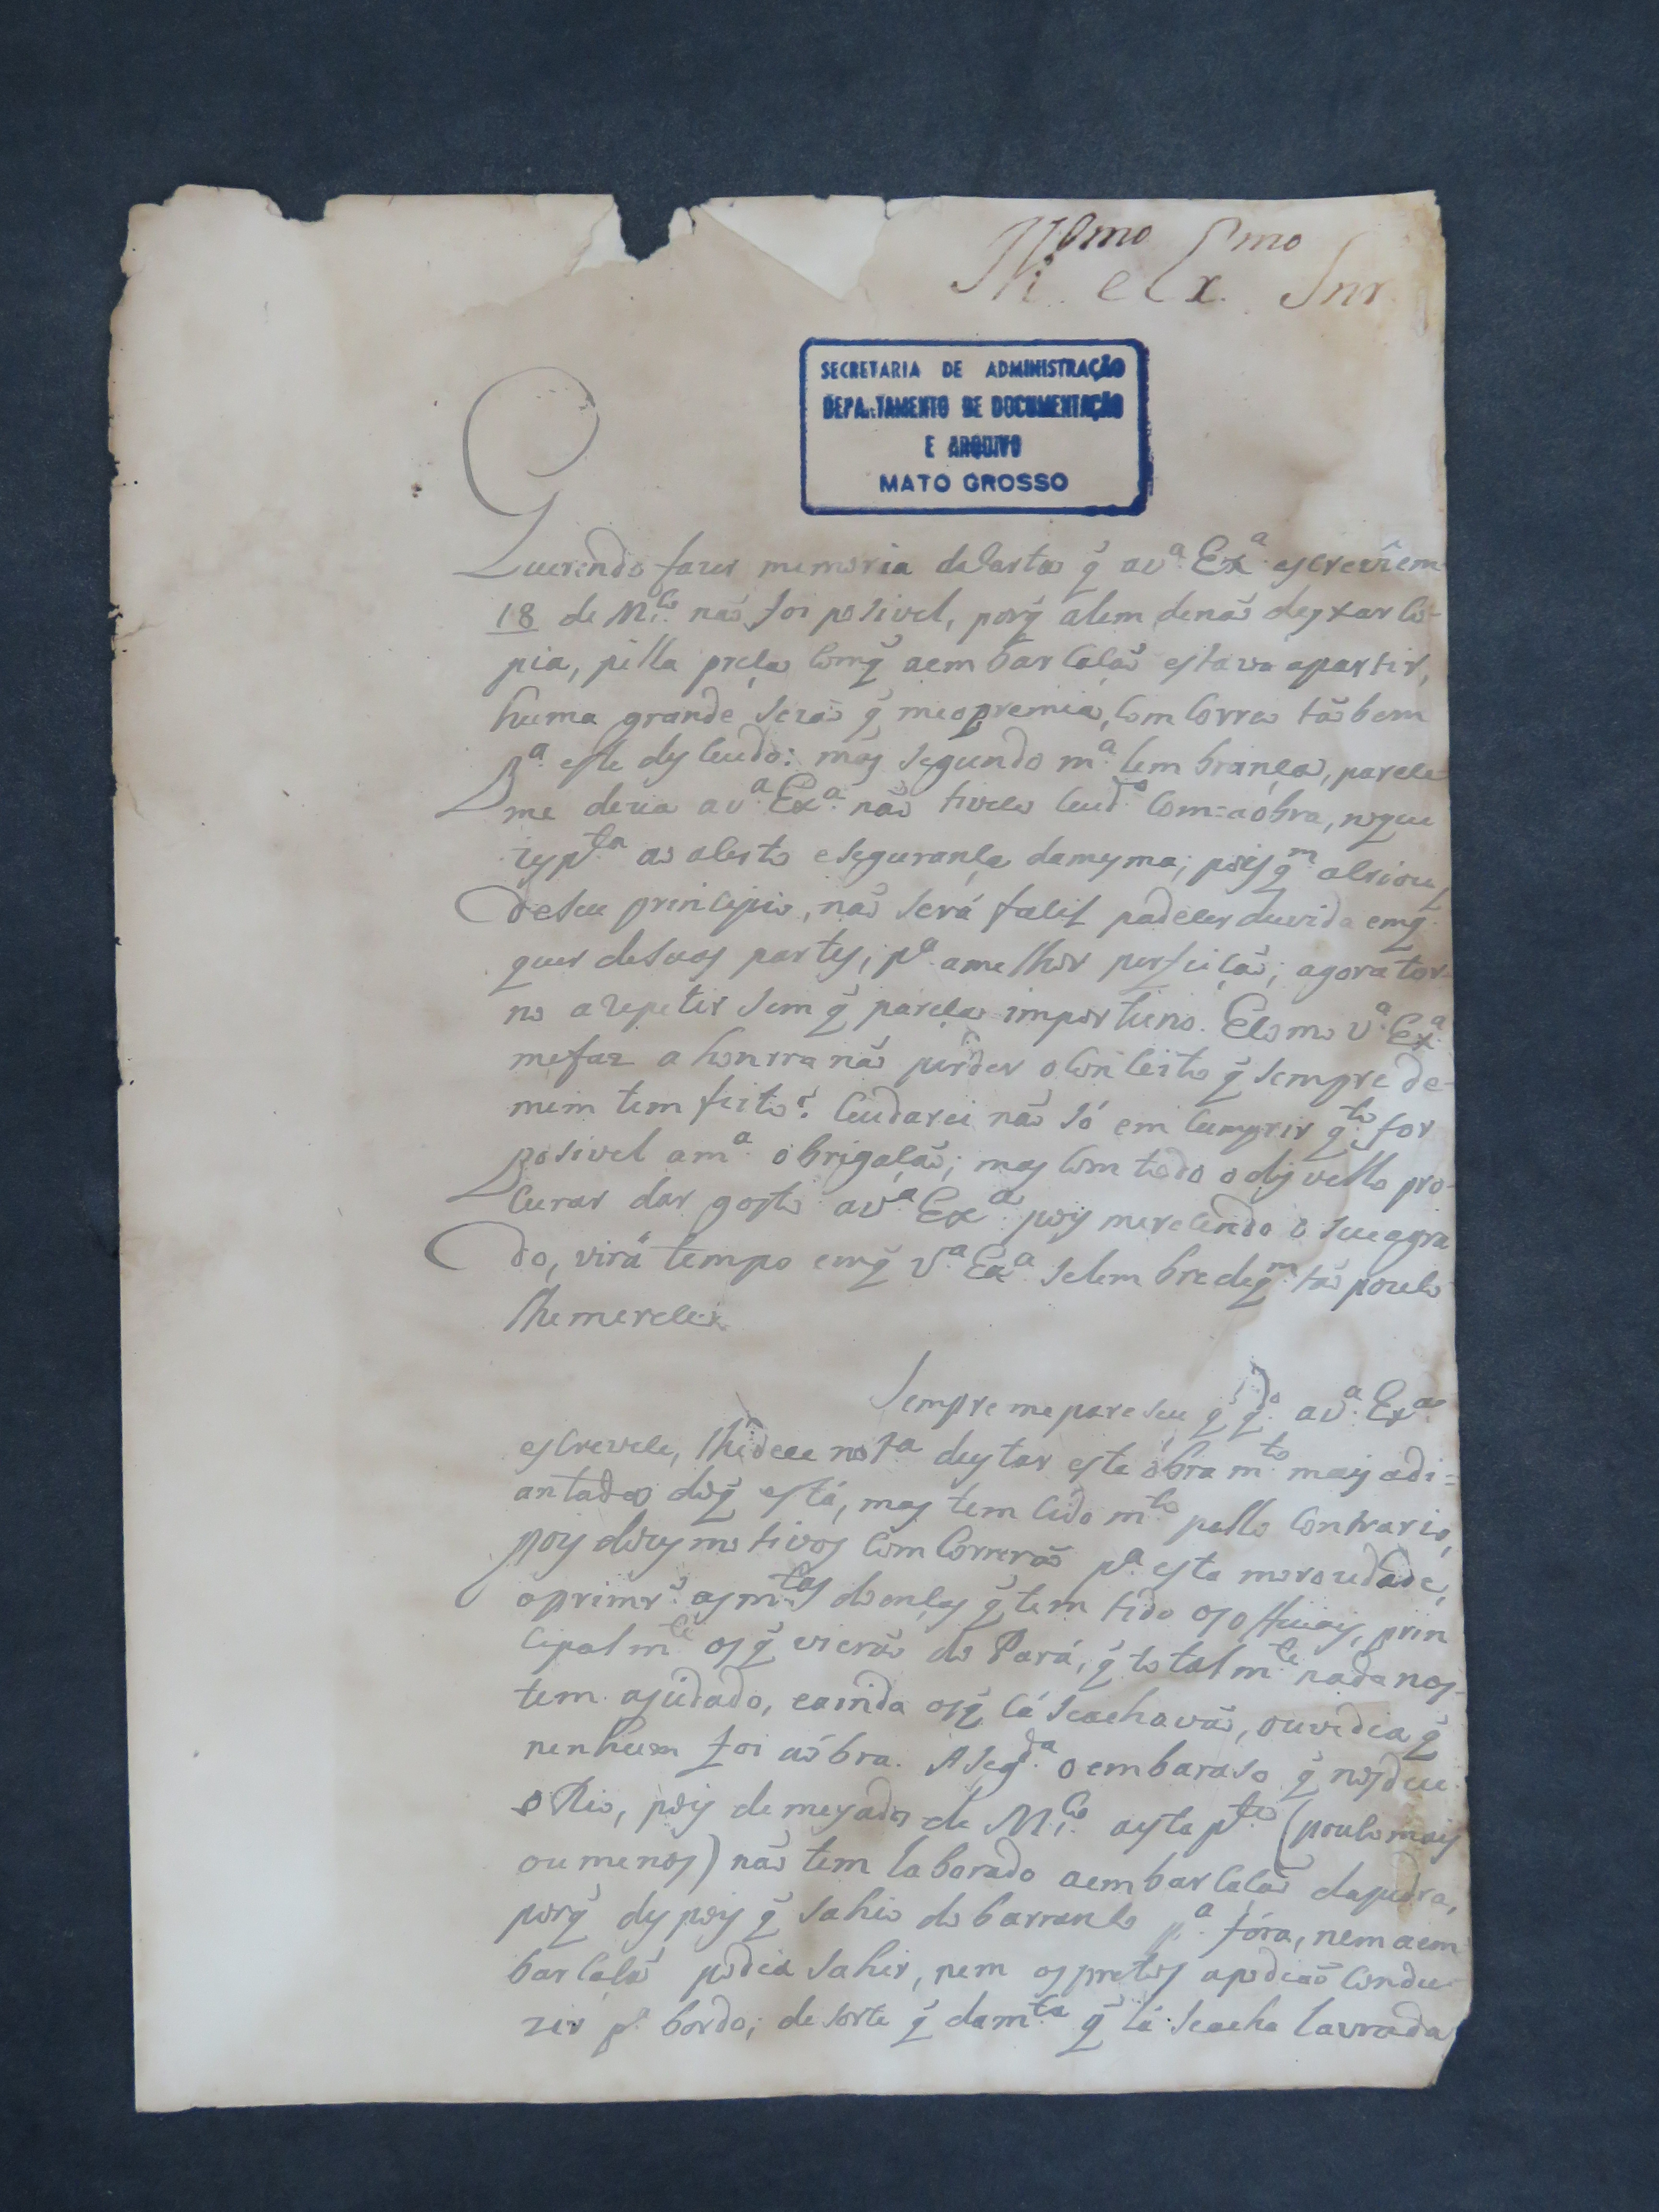 Illmo e Exmo Snr
SECRETARIA DE ADMINISTRAÇÃO
DEPARTAMENTO DE DOCUMENTAÇÃO
E ARQUIVO
MATO GROSSO
Querendo fazer memoria da Carta q̃ a v.ª Ex.ª escrevî em
18 de M.ço não foi posivel, porq̃ alem de não deyxar Co-
pia, pella preça Comq̃ a embarCação estava apartir,
huma grande sezão q̃ me opremia, Com Corrêo tãobem
p.ª este desCuido: mas segundo m.ª lembrança, pareCe
me dezia a v.ª Ex.ª não tivese Cuid.º Com=a óbra, no que
resp.ta ao aCerto e segurança da mesma; pois q.m
de seu prinCipio, não será faCil padeCer duvida em q̃
quer de suas partes, p.ª a melhor perfeição; agora tor-
no a repetir sem q̃ pareça importuno. E Como v.ª Ex.ª
me faz a honrra não perder o ConCeito q̃ sempre de-
mim tem feito: Cuidarei não só em Cumprir q.to for
posivel a m.ª obrigação; mas Com todo o disvello pro-
Curar dar gosto a v.ª Ex.ª pois mereCendo o seu agra
do, virá tempo em q̃ v.ª Ex.ª se lembre de q.m tão pouCo
lhe mereCe.
Sempre me pareseu q̃ q.do a v.ª Ex.ª
esCrevese, lhe dese not.ª de estar esta óbra m.to mais adi=
antada do q̃ está, mas tem Cido m.to pello Contrario,
pois dois motivos ComCorrerão p.ª esta morozidade,
o primr.º as m.tas doenças q̃ tem tido os offiCiais, prin
Cipalm.te os q̃ vierão do Pará, q̃ totalm.te nada nos-
tem ajudado, e ainda os q̃ Cá se achavão, ouve dia q̃
nenhum foi a óbra. A seg.da o embaraso q̃ nos deu
o Rio, pois de meyados de M.ço a esta p.te (pouCo mais
ou menos) não tem laborado a embarCação da pedra,
porq̃ des pois q̃ sahio do barranCo p.ª fóra, nem a em
barCação podia sahir, nem os pretos a podião Condu-
zir p.ª bordo; de sorte q̃ da m.ta q̃ lá se acha lavrada